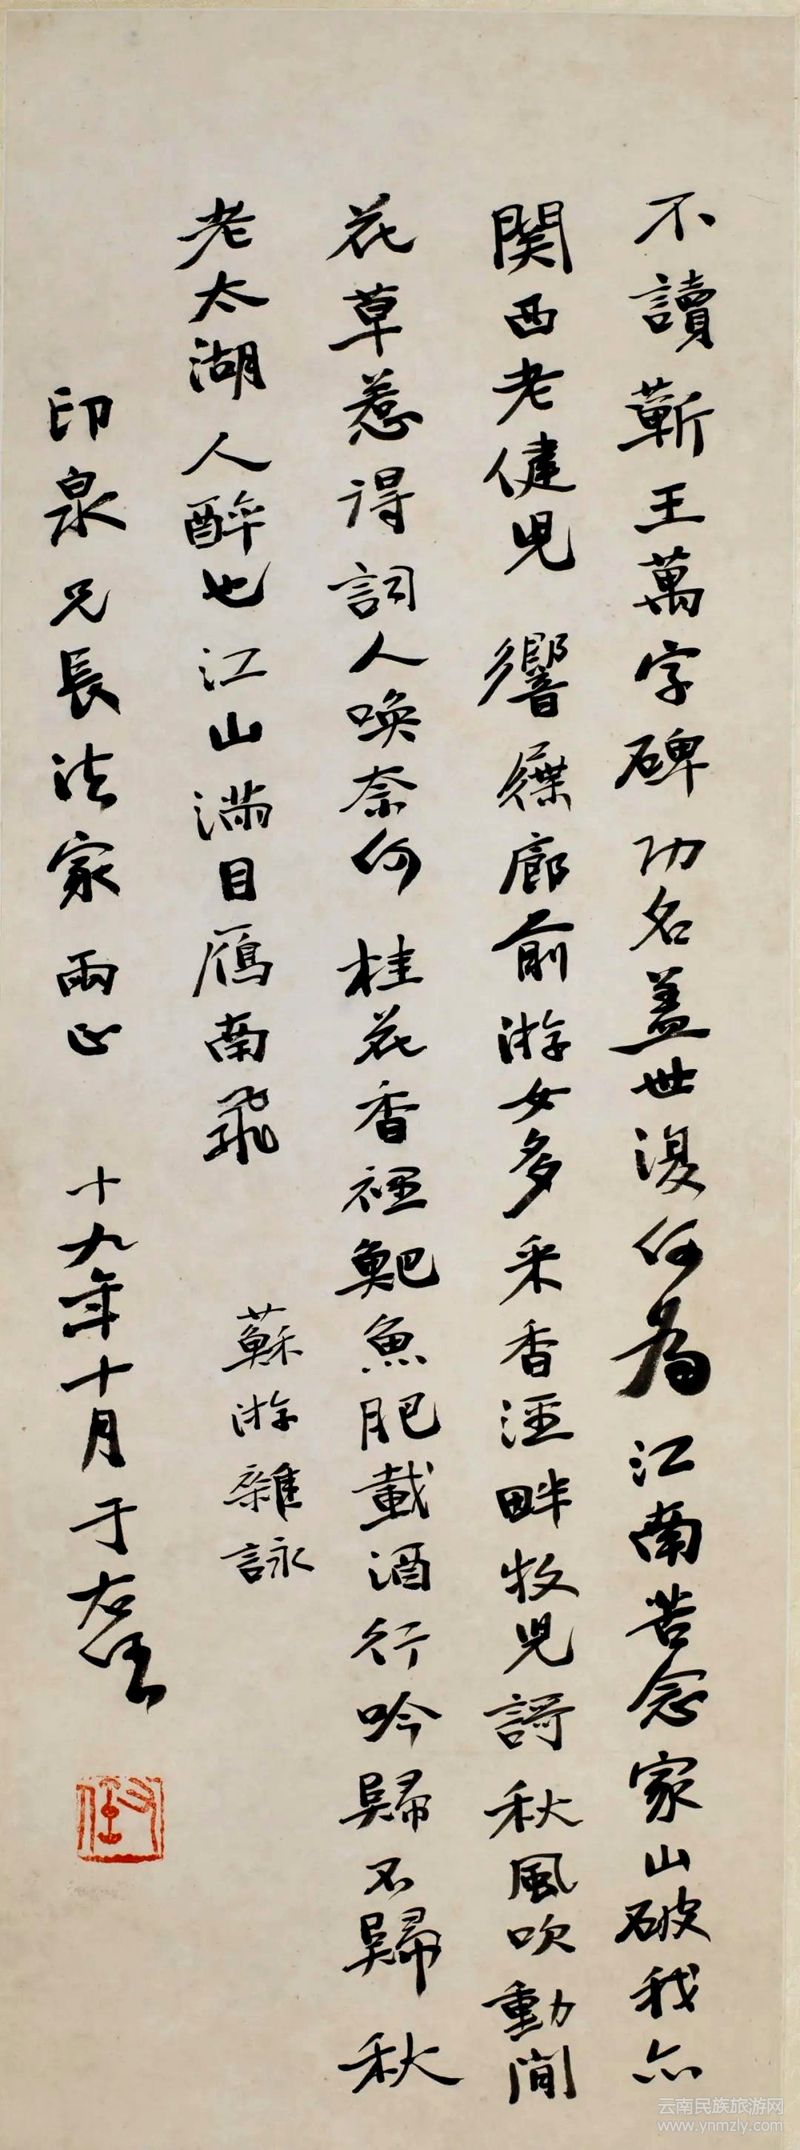 不讀蘄王萬字碑功名蓋世復何為江南苦念家山破我亦
関西老健児響屧廊前游女多采香涇畔牧児謌秋風吹動閒
花草惹得詞人喚奈何桂花香裡鮑魚肥載酒行吟歸不歸秋
老太湖人醉也江山滿目鴈南飛
蘇游雜詠
印泉兄長法家兩正
十九年十月于右任
右任
云南民族旅游网
www.ynmzly.com